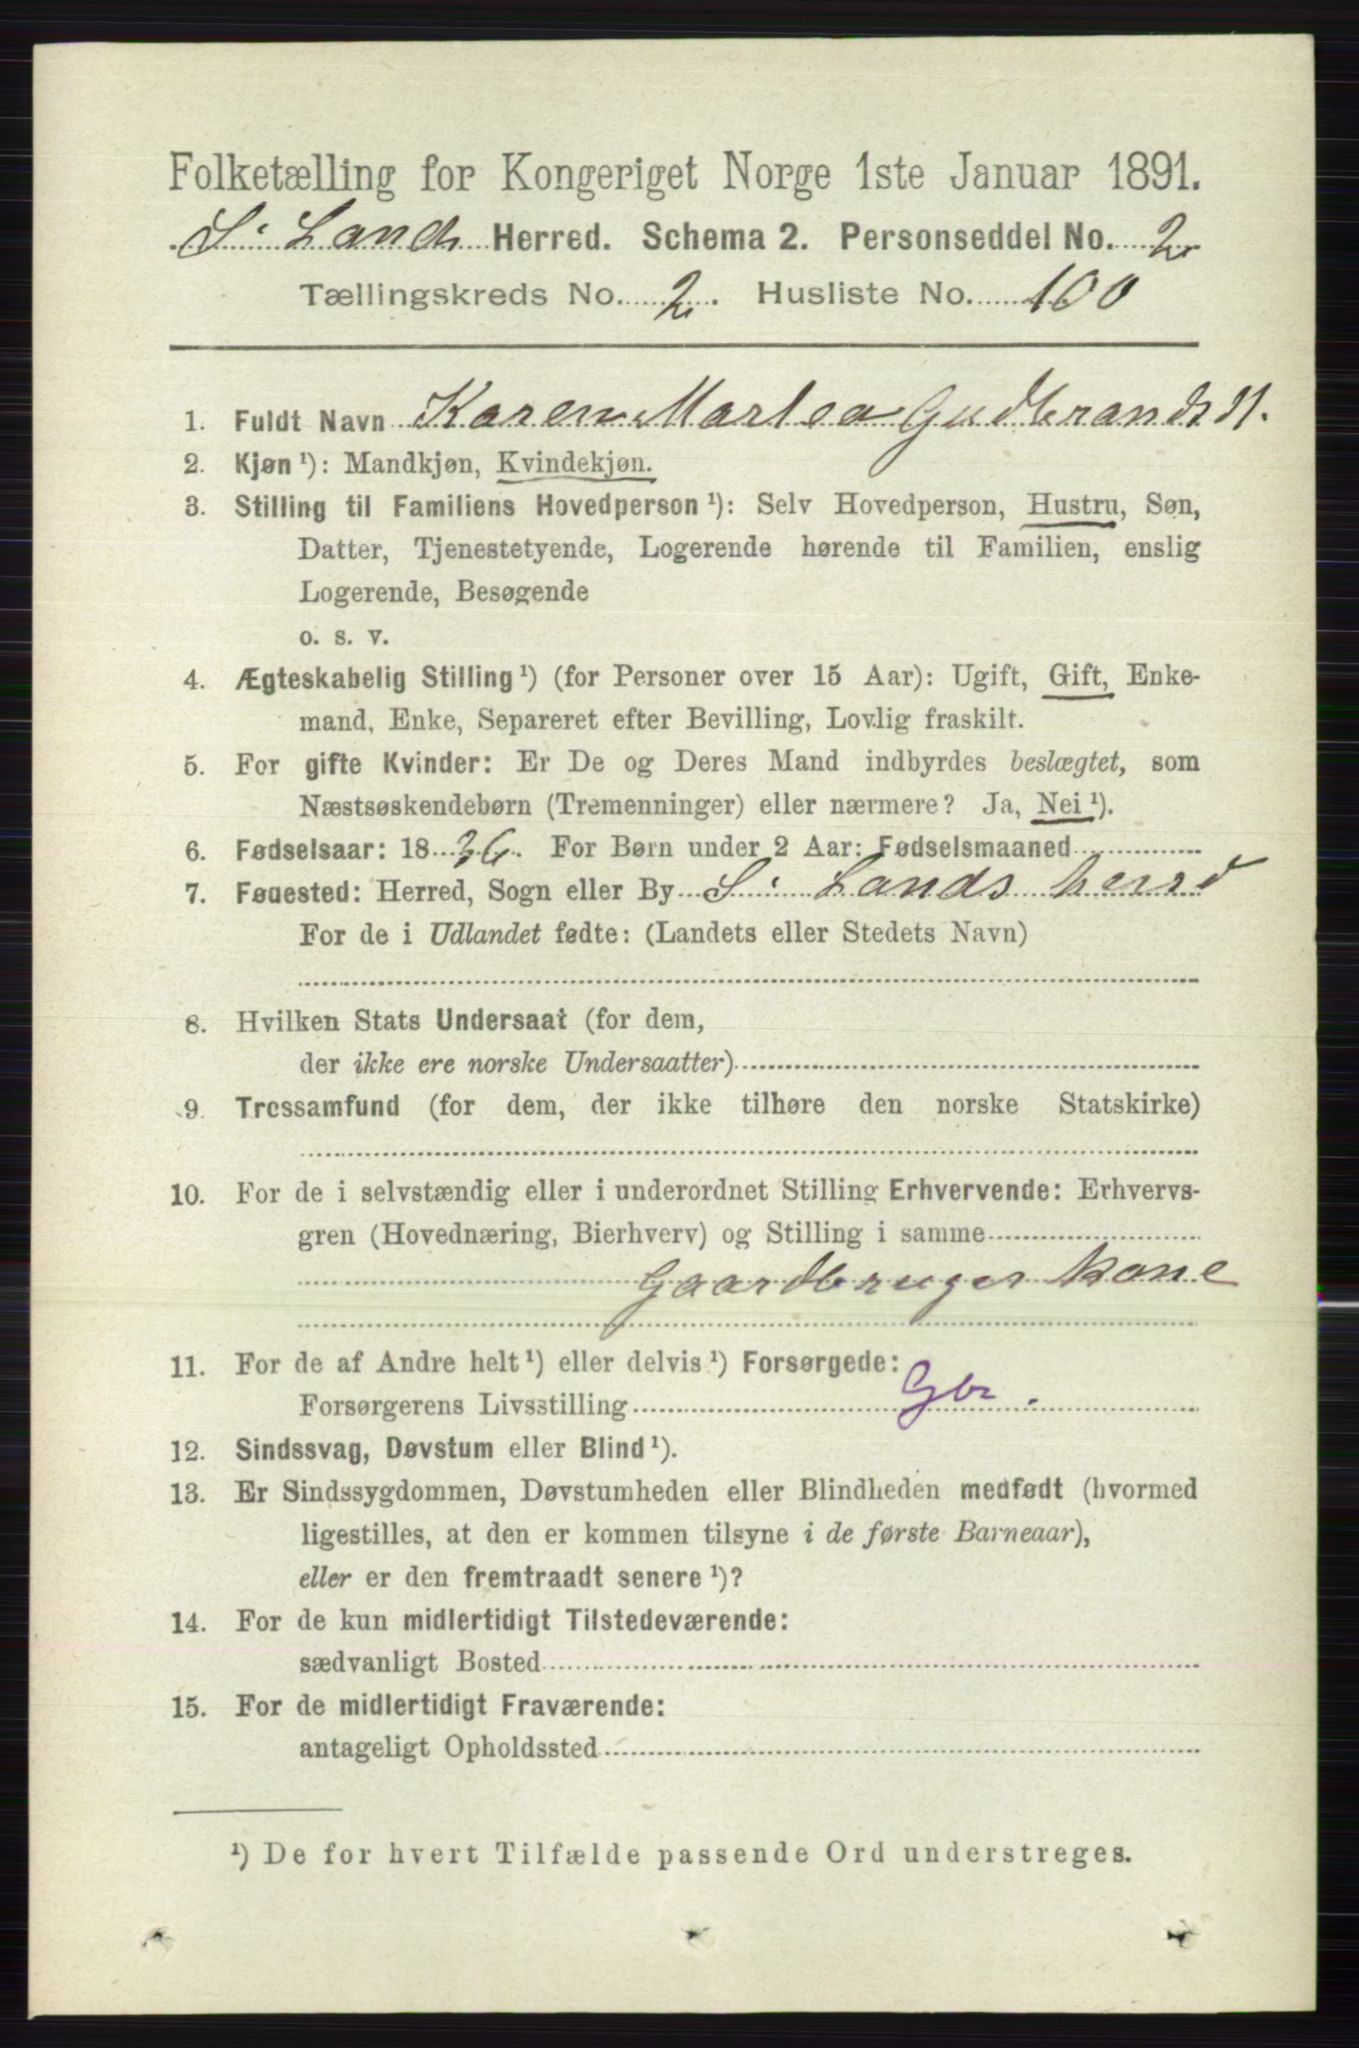 Folketælling for Kongeriget Norge 1ste Januar 1891.
S. Land Herred. Schema 2. Personseddel No. 2
Tællingskreds No. 2. Husliste No. 100
1. Fuldt Navn Karen Martea Gudbrandsd.
2. Kjøn ¹): Mandkjøn, Kvindekjøn.
3. Stilling til Familiens Hovedperson ¹): Selv Hovedperson, Hustru, Søn,
Datter, Tjenestetyende, Logerende hørende til Familien, enslig
Logerende, Besøgende
o. s. v.
4. Ægteskabelig Stilling ¹) (for Personer over 15 Aar): Ugift, Gift, Enke-
mand, Enke, Separeret efter Bevilling, Lovlig fraskilt.
5. For gifte Kvinder: Er De og Deres Mand indbyrdes beslægtet, som
Næstsøskendebørn (Tremenninger) eller nærmere? Ja, Nei ¹).
6. Fødselsaar: 1836. For Børn under 2 Aar: Fødselsmaaned
7. Fødested: Herred, Sogn eller By S. Lands herred
For de i Udlandet fødte: (Landets eller Stedets Navn)
8. Hvilken Stats Undersaat (for dem,
der ikke ere norske Undersaatter)
9. Trossamfund (for dem, der ikke tilhøre den norske Statskirke)
10. For de i selvstændig eller i underordnet Stilling Erhvervende: Erhvervs-
gren (Hovednæring, Bierhverv) og Stilling i samme
Gaardbruger kone
11. For de af Andre helt ¹) eller delvis ¹) Forsørgede:
Forsørgerens Livsstilling Gbr.
12. Sindssvag, Døvstum eller Blind ¹).
13. Er Sindssygdommen, Døvstumheden eller Blindheden medfødt (hvormed
ligestilles, at den er kommen tilsyne i de første Barneaar),
eller er den fremtraadt senere ¹)?
14. For de kun midlertidigt Tilstedeværende:
sædvanligt Bosted
15. For de midlertidigt Fraværende:
antageligt Opholdssted
¹) De for hvert Tilfælde passende Ord understreges.